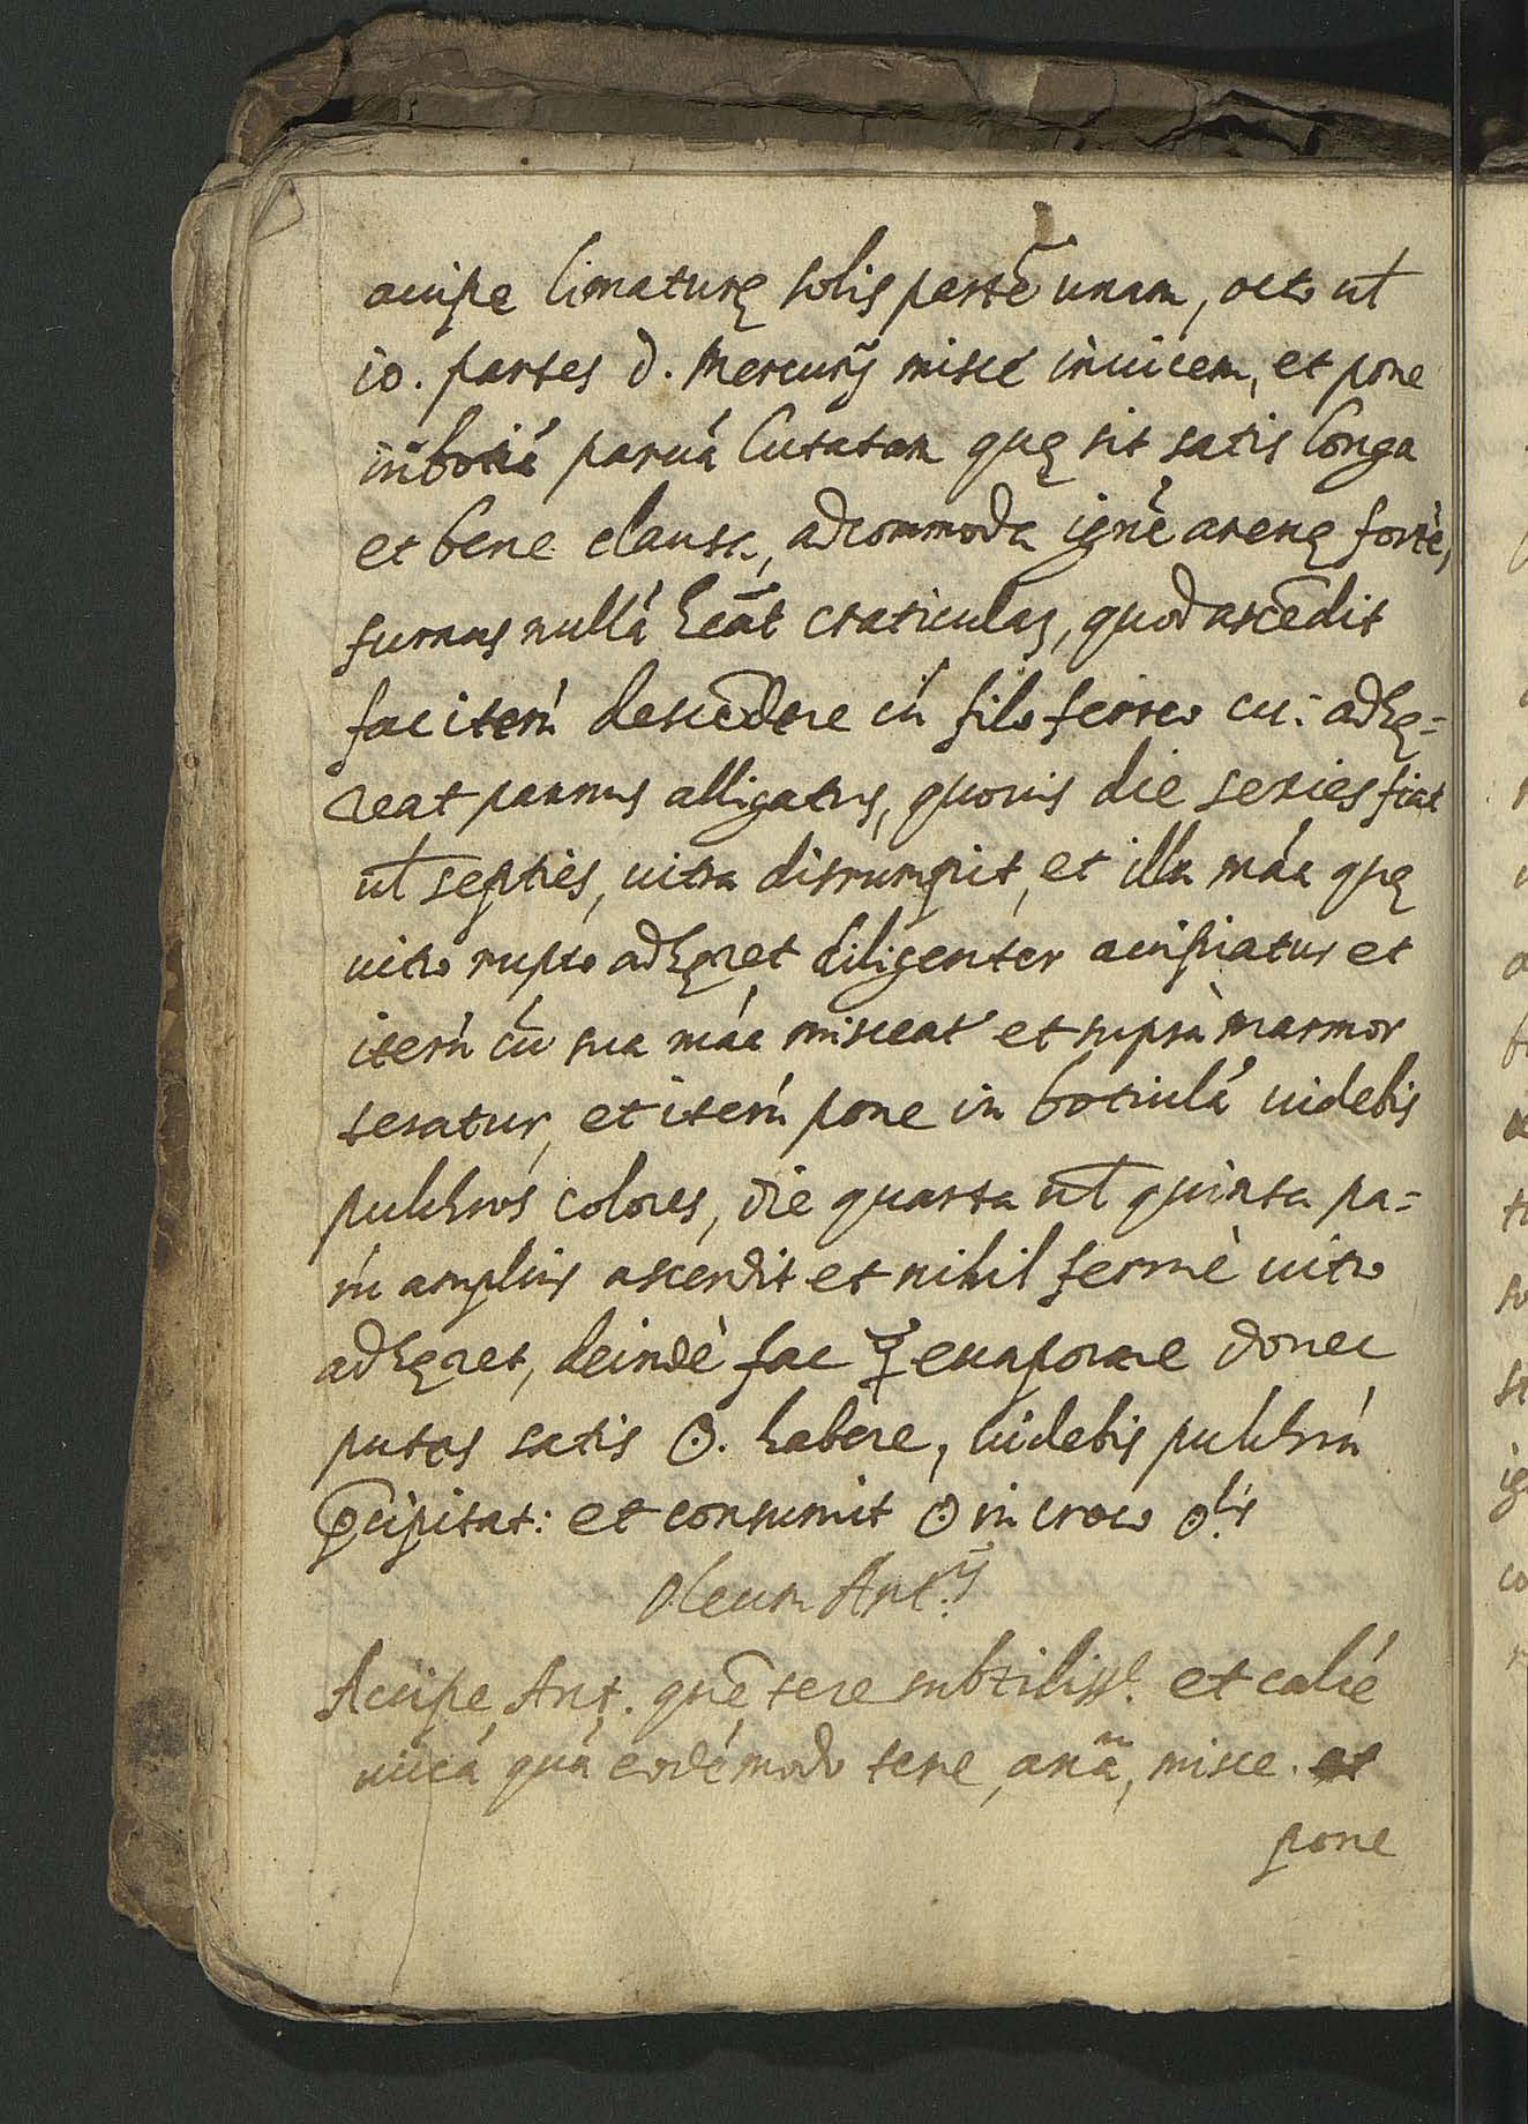 accipe limaturę solis partē unam, octo ul̄
io. partes d. Mercurij misce inuicem, et pone
in paruá lutatam quę sit satis longa
et bene clausa, adcommoda ignè arenę fortè,
furnus nullá heāt craticulas, quod ascēdit
fac iterú descēdere cú filo ferreo cui adhę=
reat pannus alligatus, quouis die sexies fiat
ul̄ septies, uitra disrumpit, et illa máa quę
uitro rupto adhęret diligenter accipiatur et
iterú cū sua máa misceat et suprà marmor
teratur, et iterú pone in botiulá uidebis
pulchros colores, die quarta ul̄ quinta pa=
rú amplius ascendit et nihil fermè uitro
adhęret, deindè fac ☿ euaporare donec
putas satis ☉. habere, uidebis pulchrú
p̄cipitat: et consumit ☉ in croco ☉lis
Oleum Ant.ij
Accipe Ant. quē tere subtiliss.e et calcé
uiuá quá eodé modo tere, anā, misce.
pone